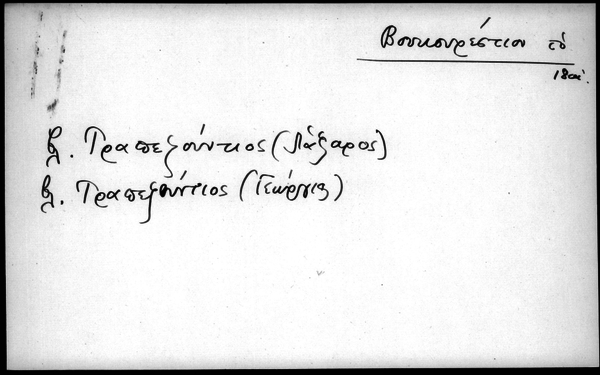 Βουκουρέστιον τό
18 αι.
βλ. Τραπεζούντιος (Λάζαρος)
βλ. Τραπεζούντιος (Γεώργιος)